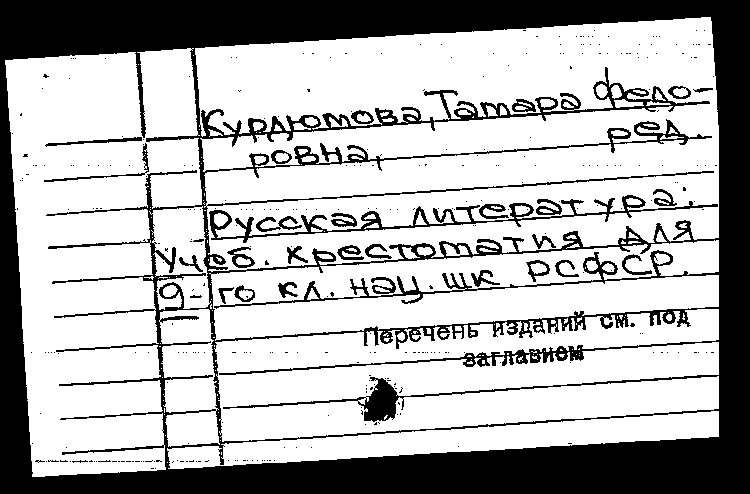 Курдюмова, Тамара Федо-
ровна, ред.
Русская литература:
Учеб. хрестоматия для
9-го кл. нац. шк. РСФСР.
Перечень изданий см. под
заглавием